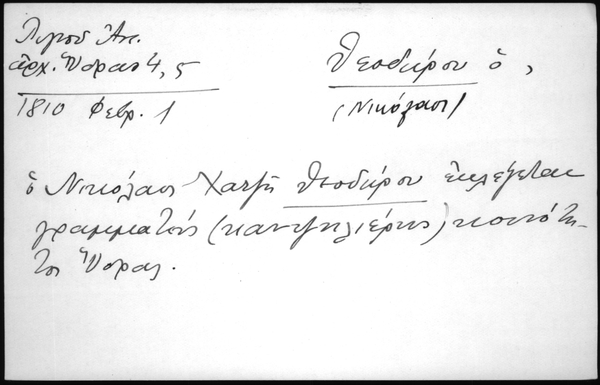 Λιγνού Ἀν.
ἀρχ. Ὕδρας 4, 5
1810 Φεβρ. 1
Θεοδώρου ὁ,
(Νικόλαος)
ὁ Νικόλαος Χατζῆ Θεοδώρου ἐκλέγεται
γραμματεύς (καντζηλιέρης) κοινότη-
τος Ὕδρας.